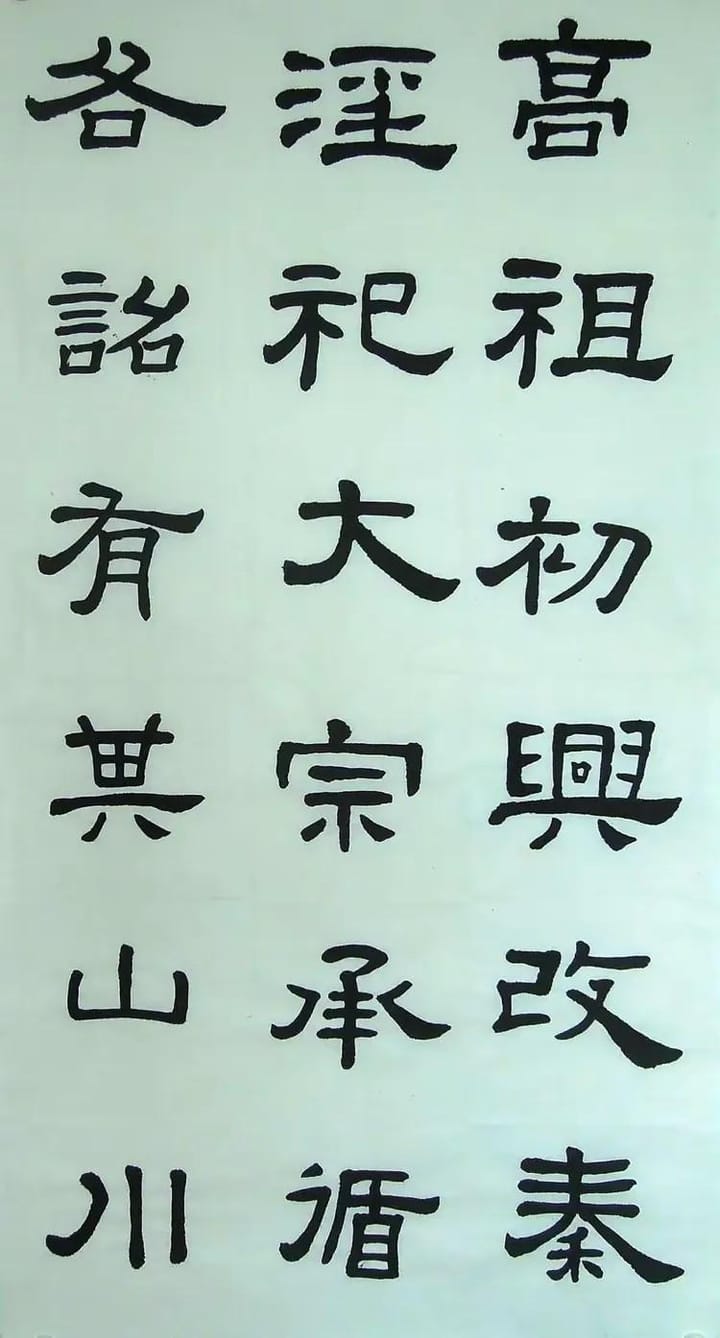 高祖初興改秦
淫祀大宗承循
各詔有其山川